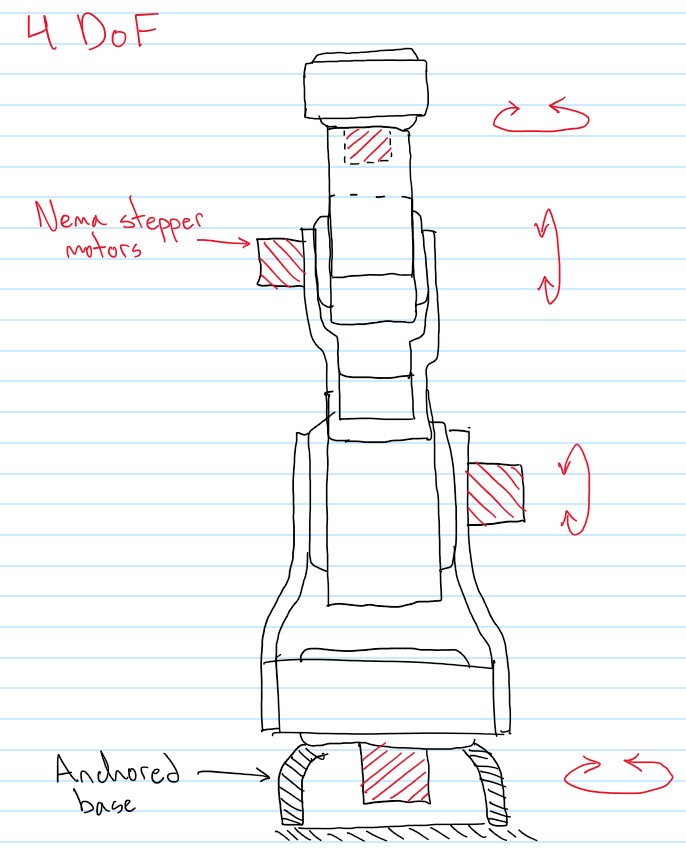 4 DoF
Nema stepper
motors
Anchored
base